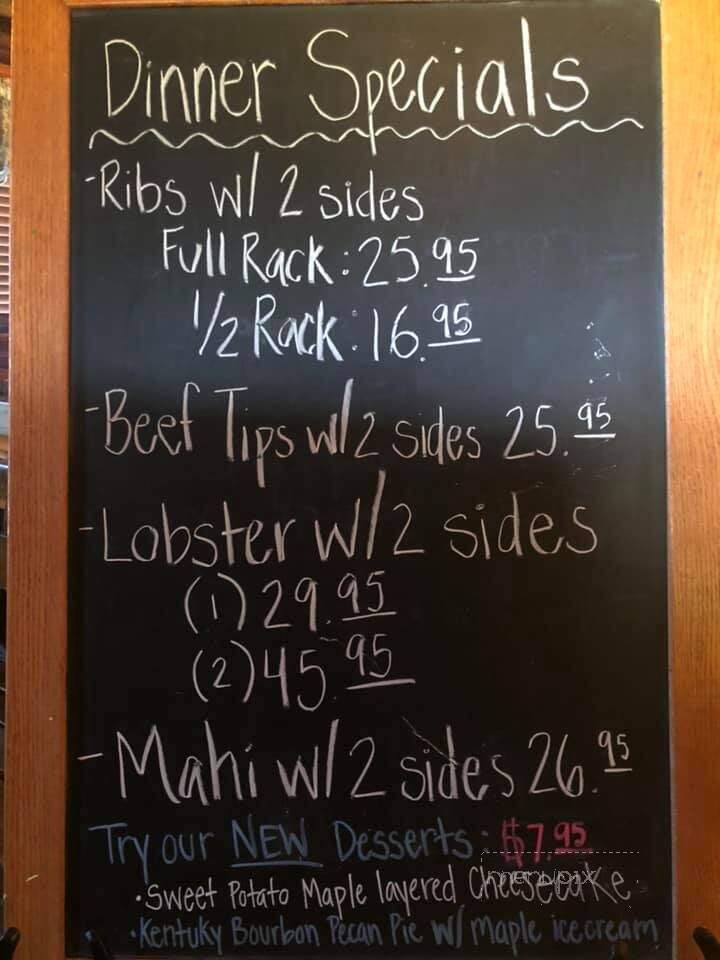 Dinner Specials
-Ribs w/ 2 sides
Full Rack: 25.95
1/2 Rack: 16.95
-Beef Tips w/2 sides 25.95
-Lobster w/2 sides
(1) 29.95
(2) 45.95
-Mahi w/2 sides 26.95
Try our NEW Desserts: $7.95
•Sweet Potato Maple layered Cheesecake
•Kentuky Bourbon Pecan Pie w/ Maple icecream